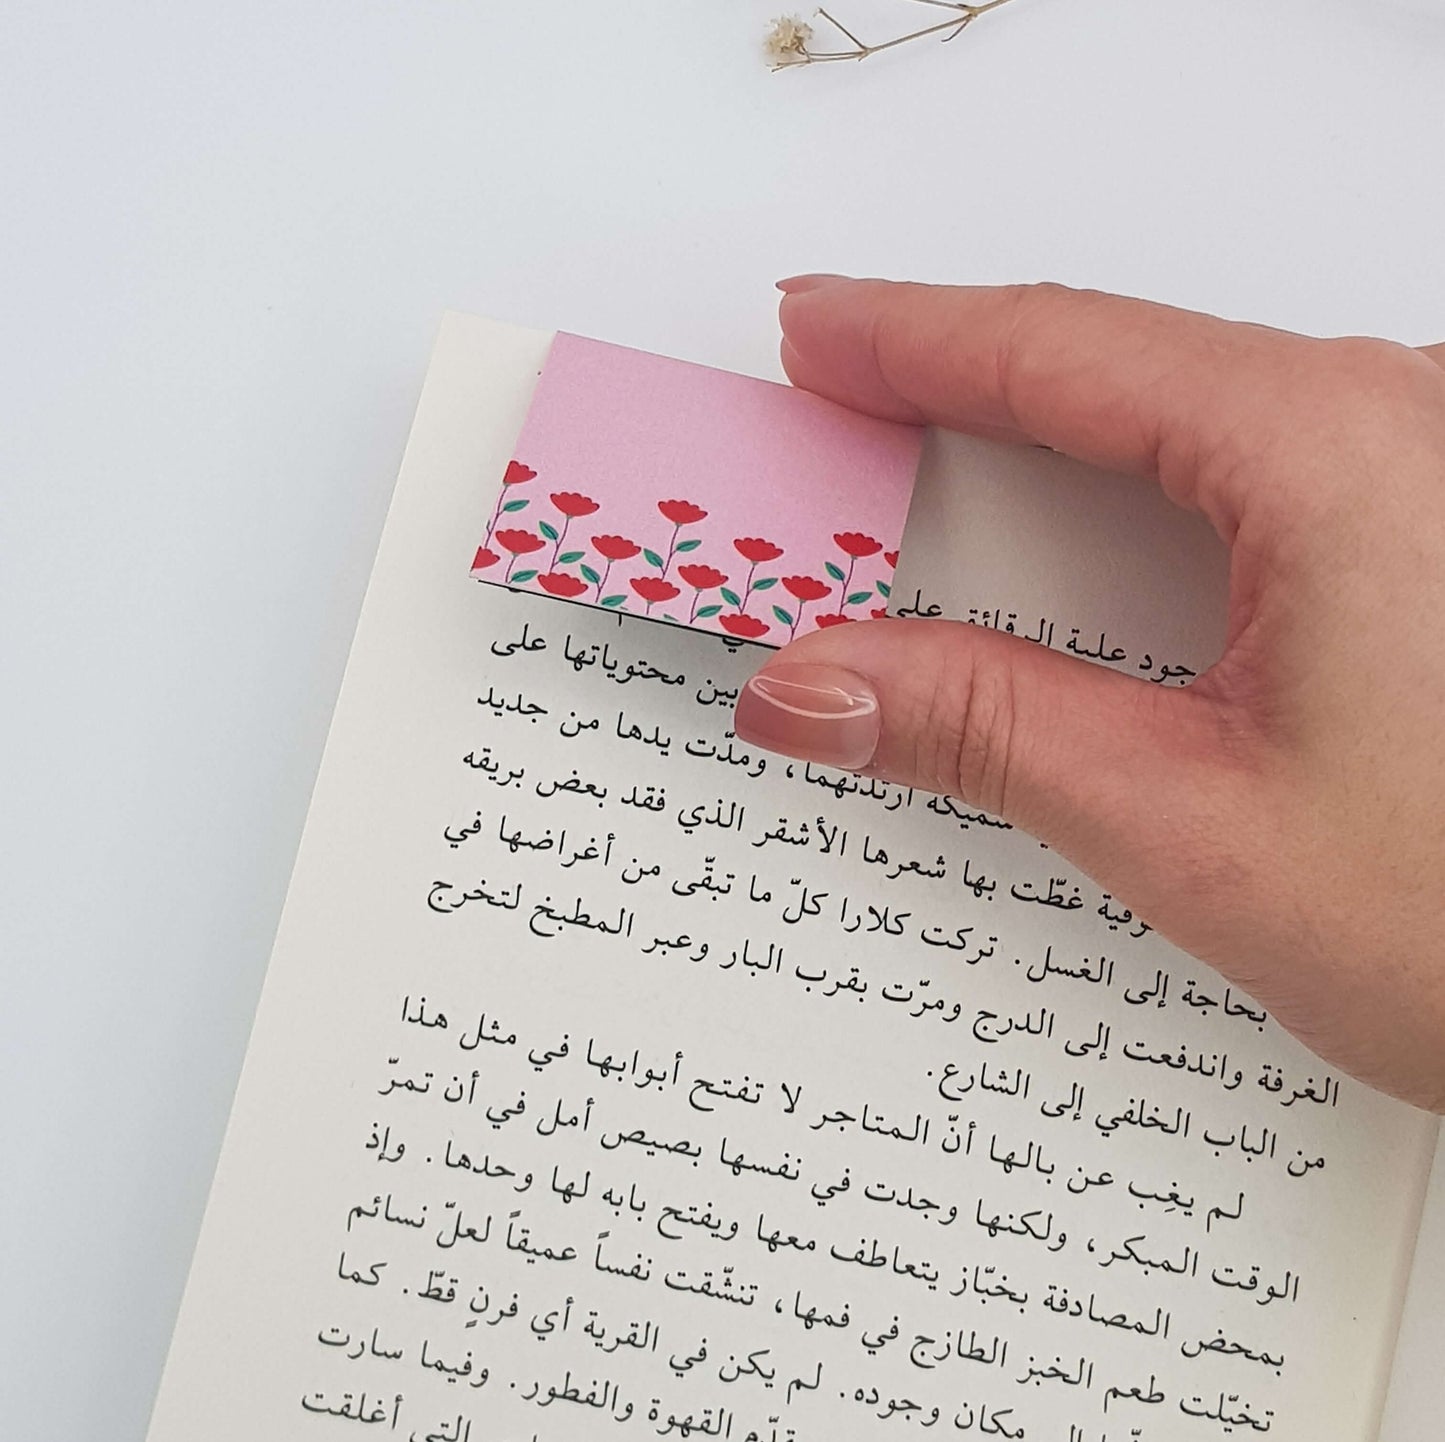 جود علبة الرقائق على
بين محتوياتها على
سميكة ارتدتهما، ومدّت يدها من جديد
غطّت بها شعرها الأشقر الذي فقد بعض بريقه
بحاجة إلى الغسل. تركت كلارا كلّ ما تبقّى من أغراضها في
الغرفة واندفعت إلى الدرج ومرّت بقرب البار وعبر المطبخ لتخرج
من الباب الخلفي إلى الشارع.
لم يغِب عن بالها أنّ المتاجر لا تفتح أبوابها في مثل هذا
الوقت المبكر، ولكنها وجدت في نفسها بصيص أمل في أن تمرّ
بمحض المصادفة بخبّاز يتعاطف معها ويفتح بابه لها وحدها. وإذ
تخيّلت طعم الخبز الطازج في فمها، تنشّقت نفساً عميقاً لعلّ نسائم
مكان وجوده. لم يكن في القرية أي فرنٍ قطّ. كما
القهوة والفطور. وفيما سارت
التي أغلقت